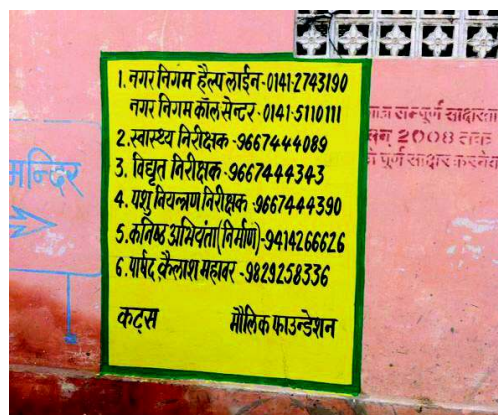 1. नगर निगम हैल्प लाईन-0141-2743190
नगर निगम कॉल सेन्टर-0141-5110111
2. स्वास्थ्य निरीक्षक-9667444089
3. विद्युत निरीक्षक-9667444343
4. पशु नियन्त्रण निरीक्षक-9667444390
5. कनिष्ठ अभियंता(निर्माण)-9414266626
6. पार्षद कैलाश महावर-9829258336
कट्स मौलिक फाउन्डेशन
मन्दिर
सम्पूर्ण साक्षरता
सन् 2008 तक
पूर्ण साक्षर करनेका